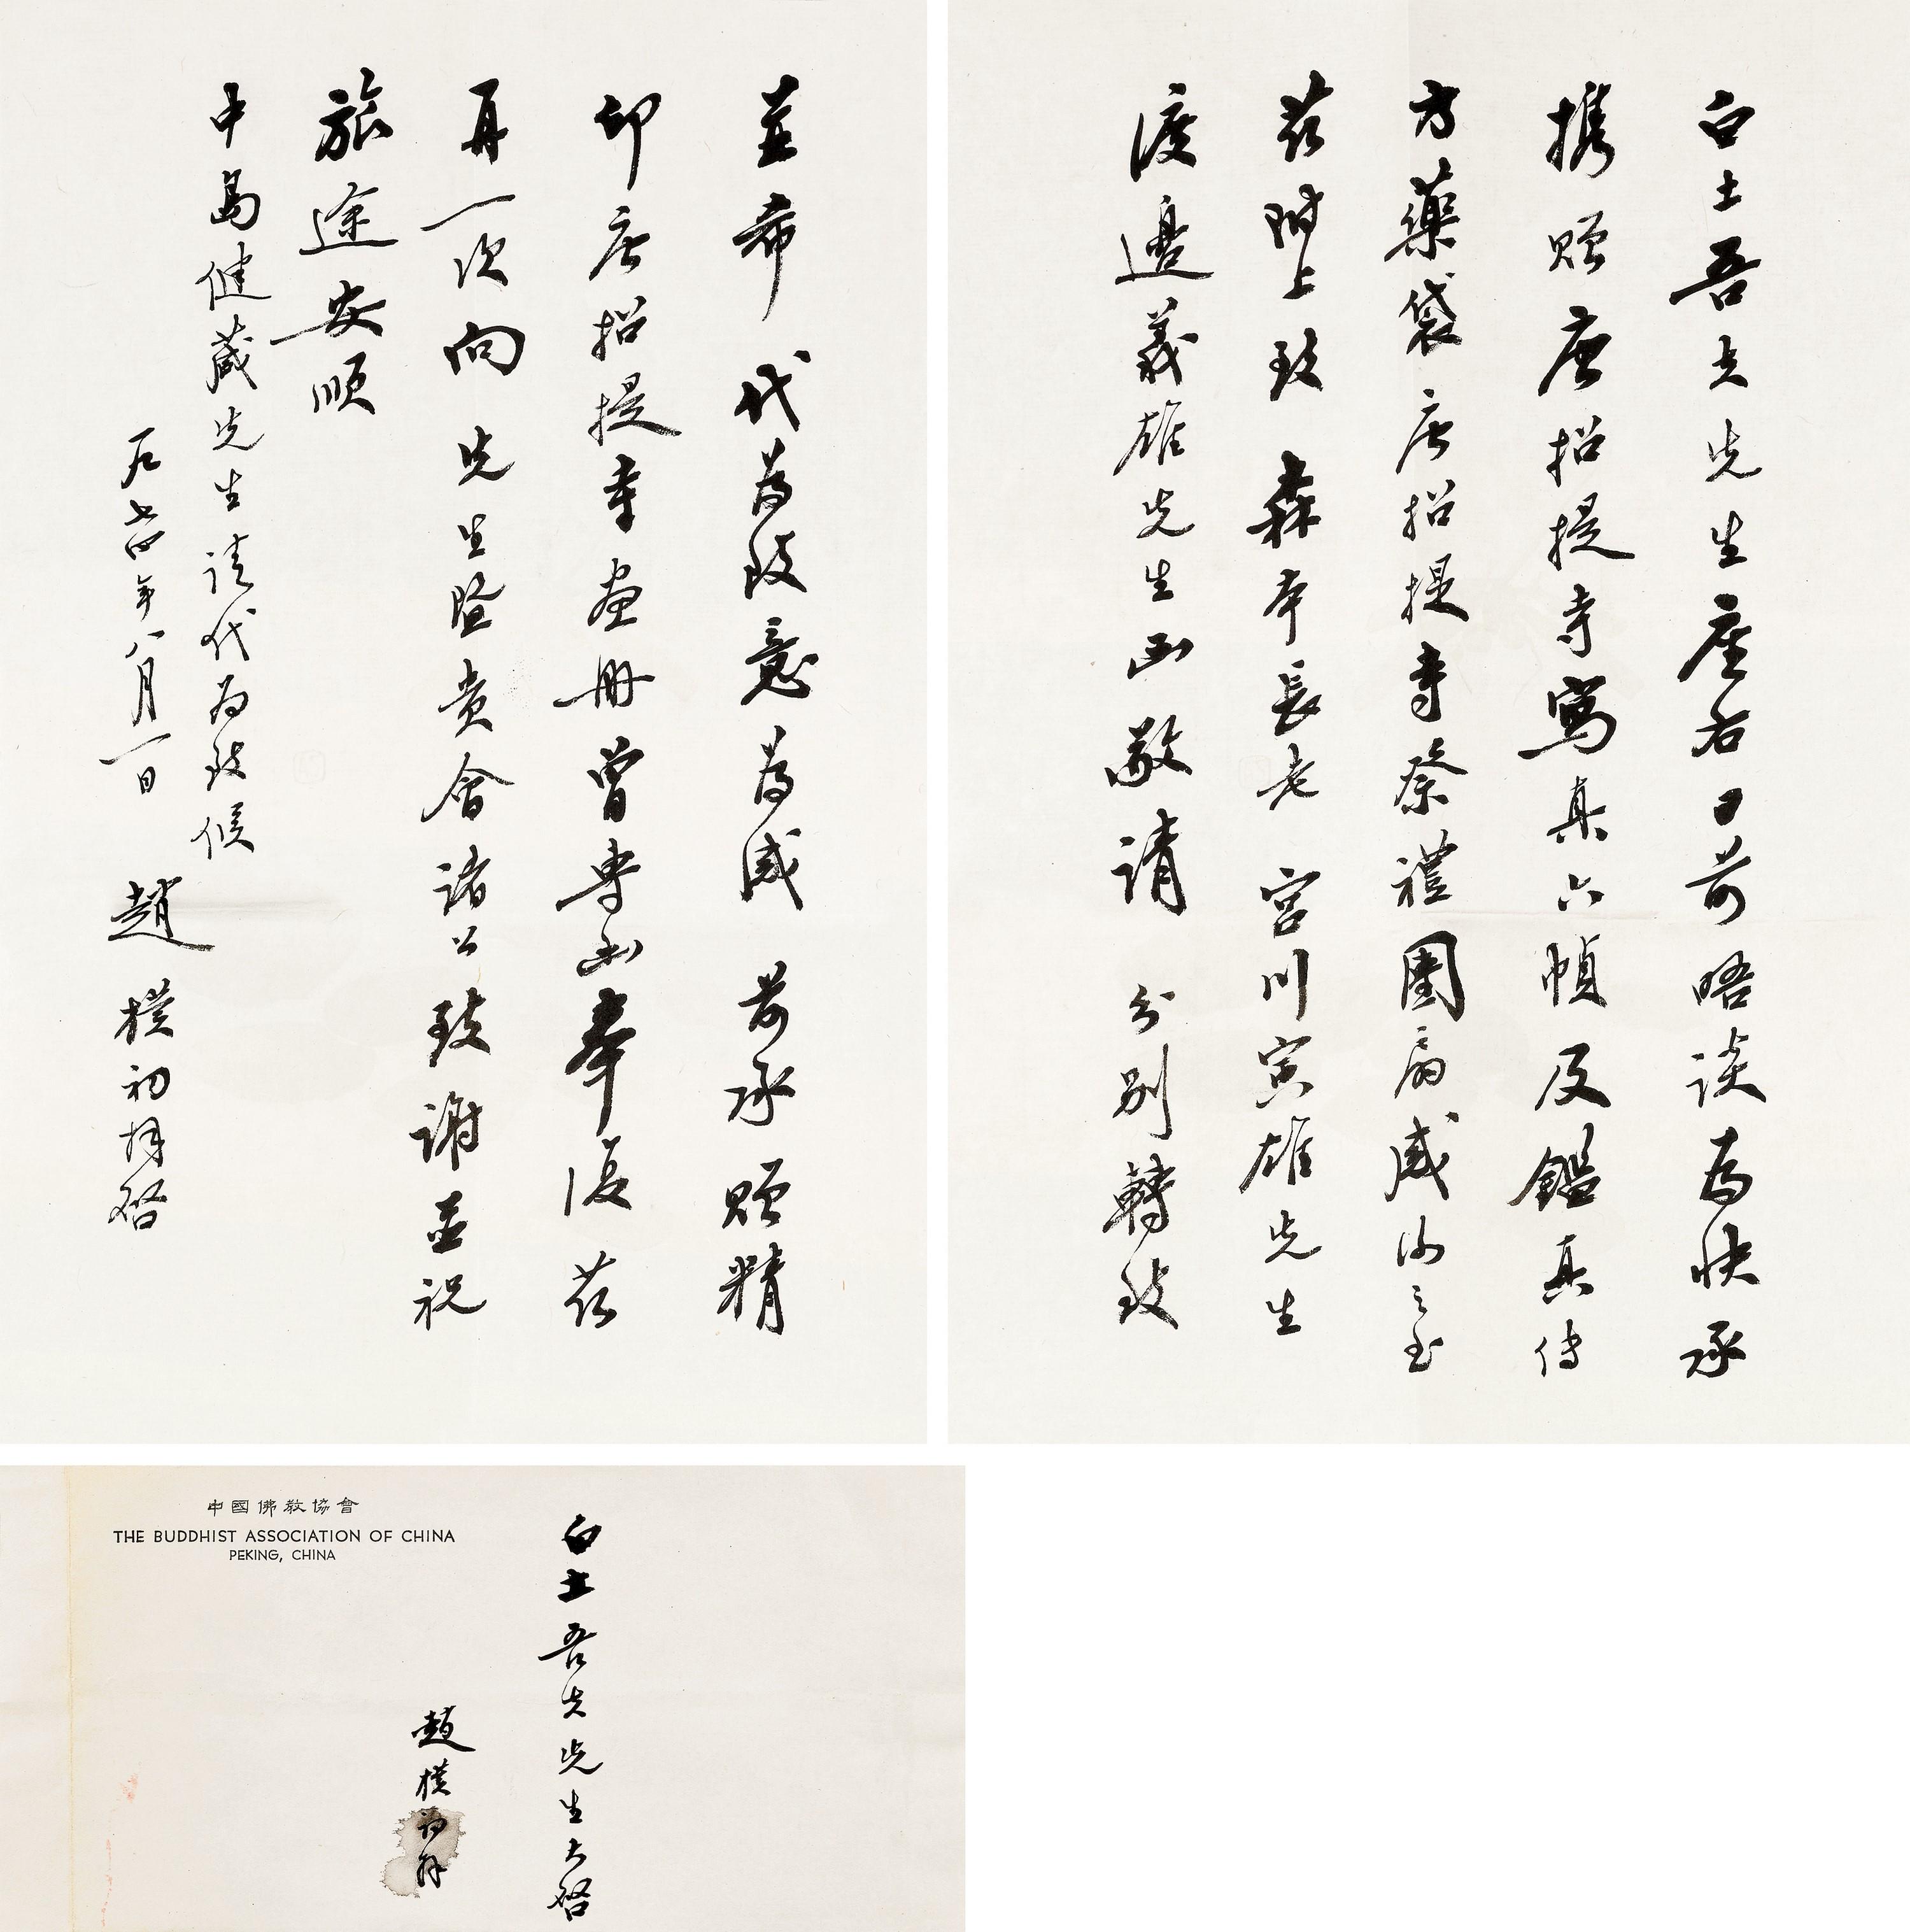 白土吾夫先生座右日前晤谈为快承
携赠唐招提寺写真六帧及鑑真传
方藥袋唐招提寺祭禮團扇感謝之至
兹附上致 森本長老 宫川寅雄先生
渡邊義雄先生函敬请 分别轉致
並希 代为致意为感 前承赠精
印唐招提寺画册曾専函奉復兹
再一次向 先生暨贵會诸公致谢並祝
旅途安順
中島健蔵先生请代为致候
一九七四年八月一日
趙樸初拜啓
中國佛教協會
THE BUDDHIST ASSOCIATION OF CHINA
PEKING, CHINA
白土吾夫先生大啓
趙樸初拜